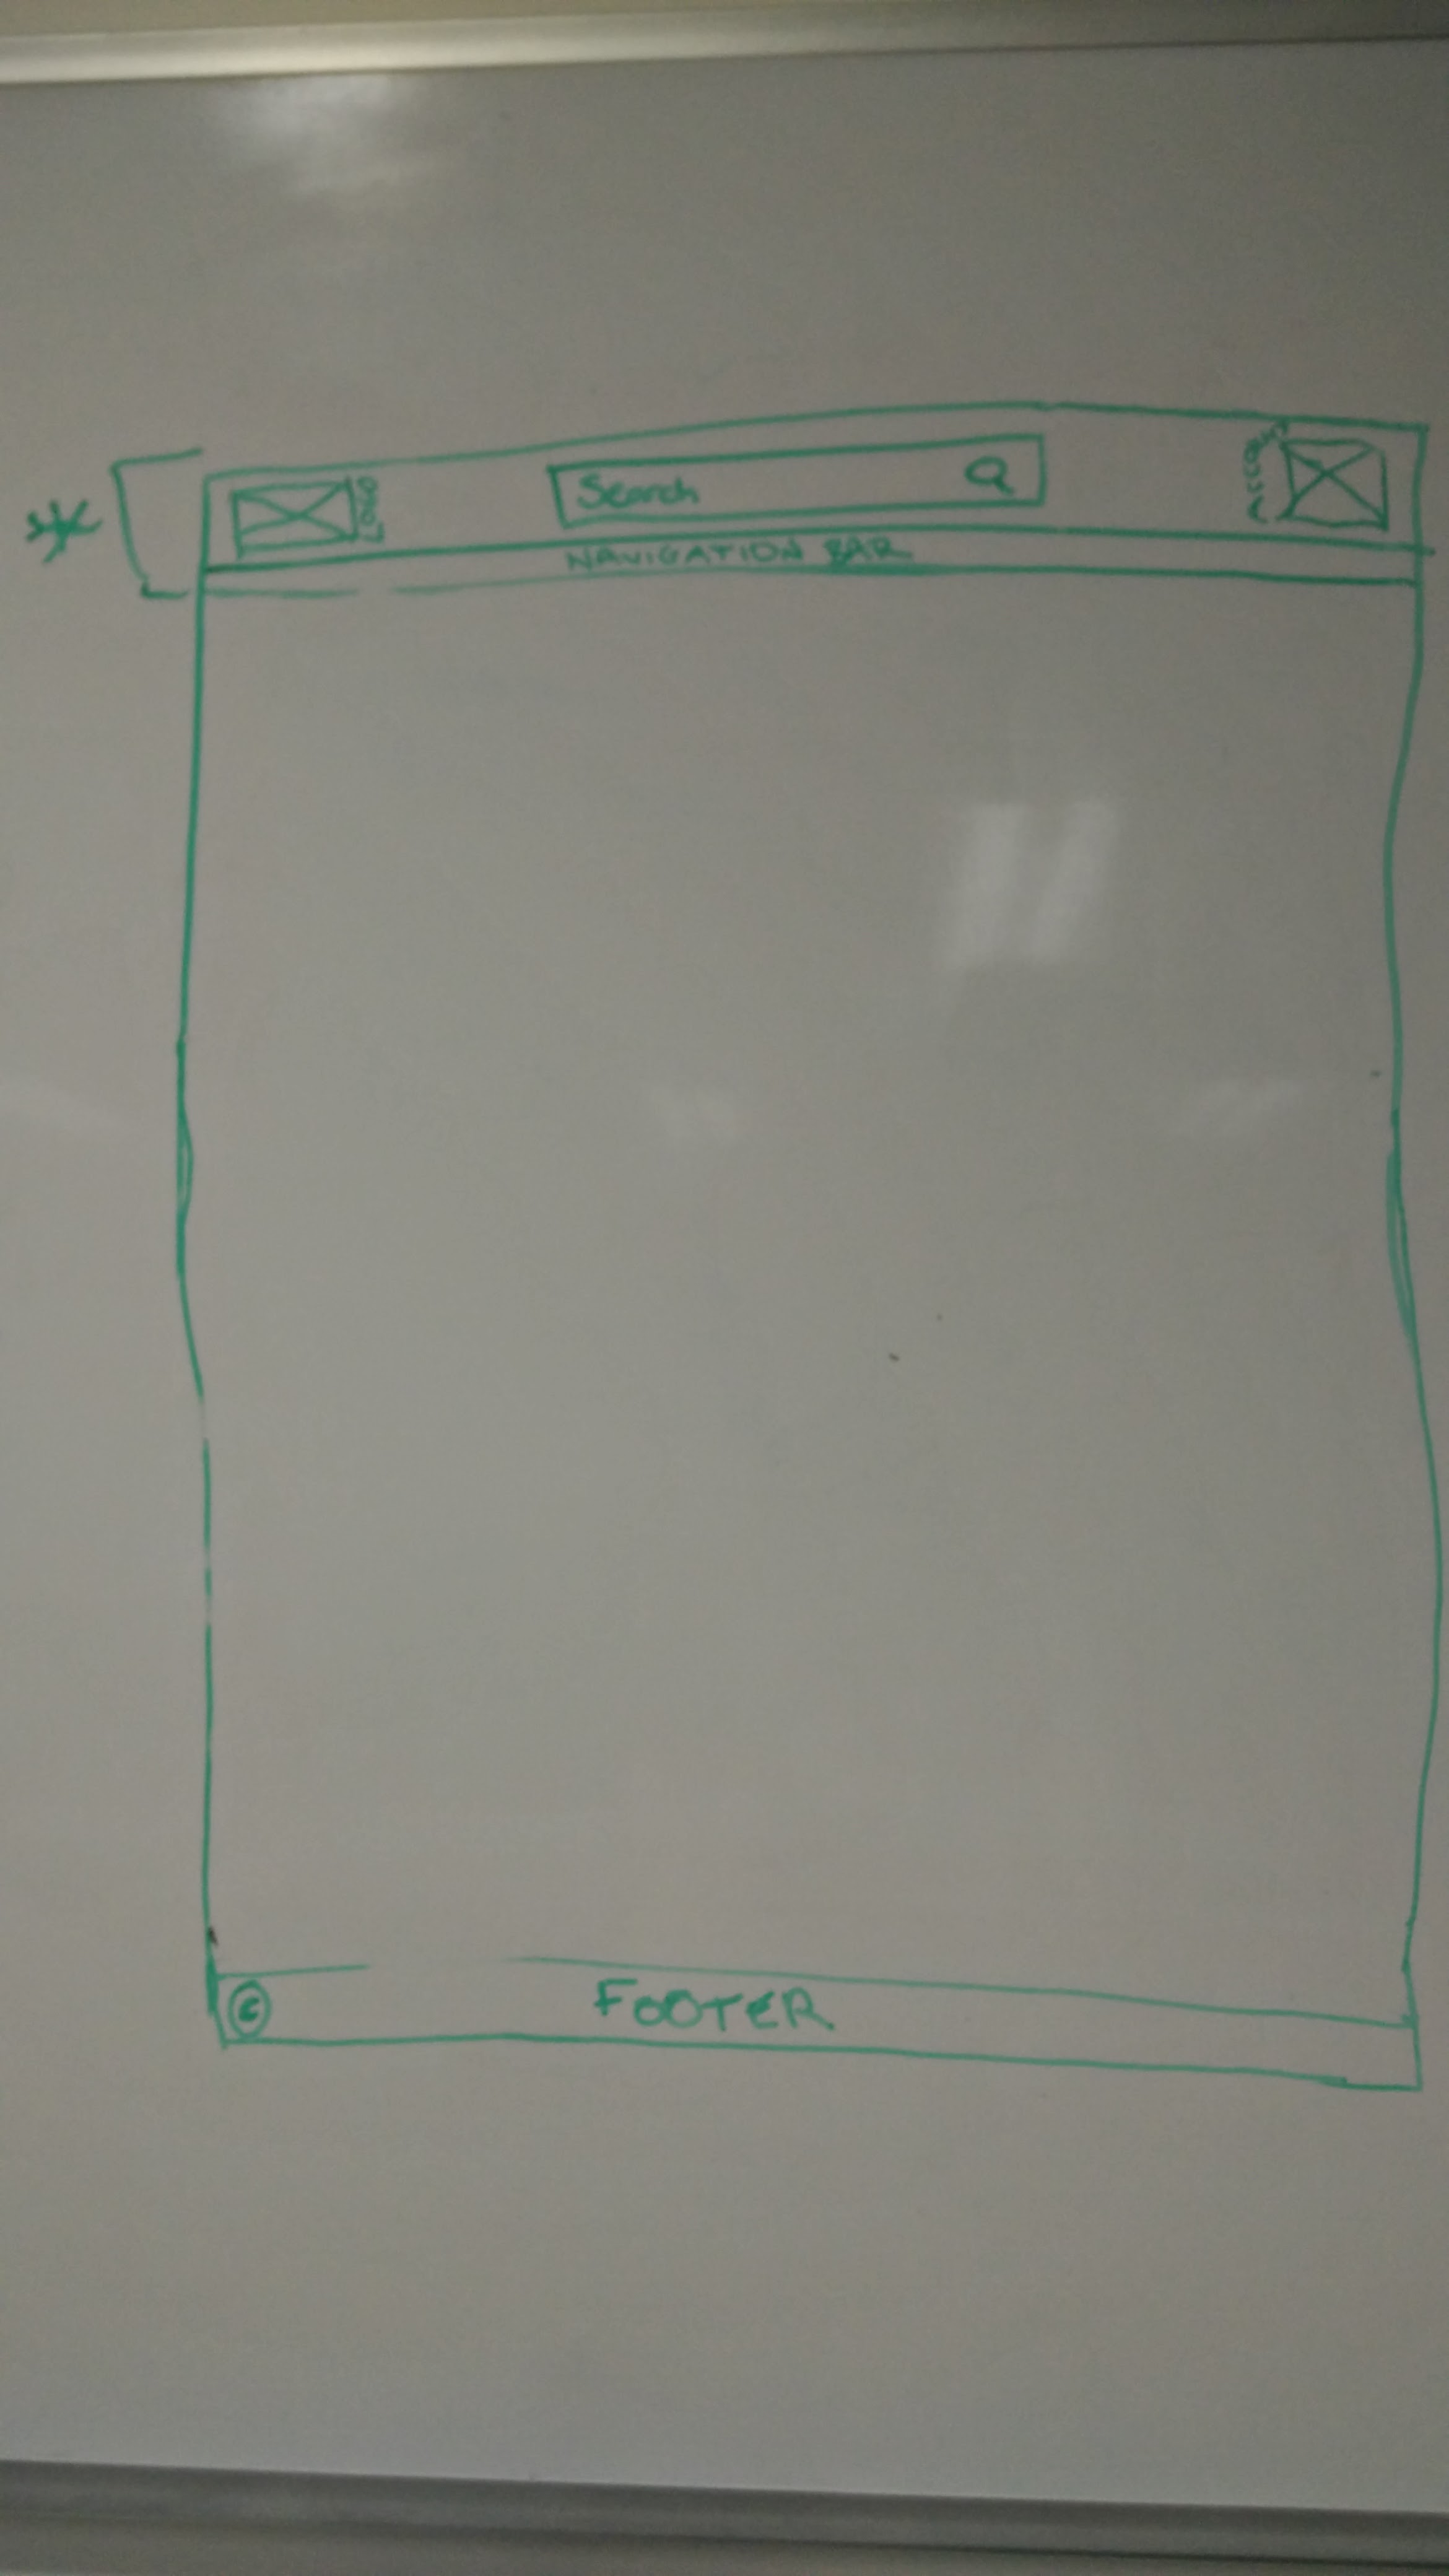 Logo
Search
Account
NAVIGATION BAR
©
FOOTER